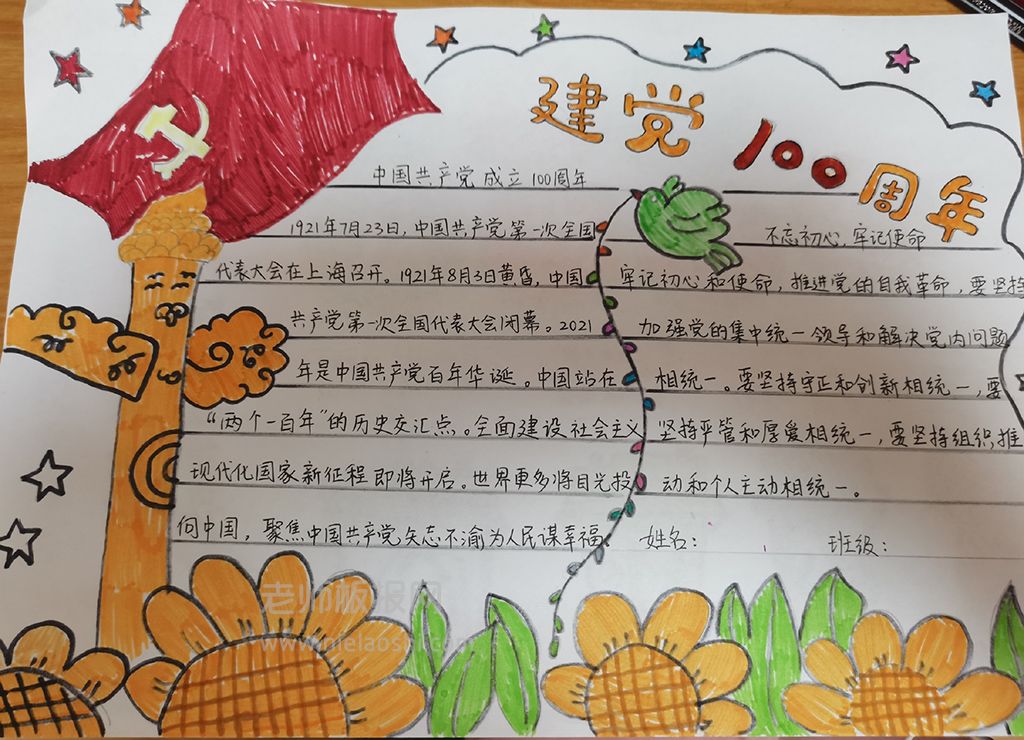 建党100周年
中国共产党成立100周年
1921年7月23日,中国共产党第一次全国
代表大会在上海召开。1921年8月3日黄昏,中国
共产党第一次全国代表大会闭幕。2021
年是中国共产党百年华诞。中国站在
“两个一百年”的历史交汇点。全面建设社会主义
现代化国家新征程即将开启。世界更多将目光投
向中国,聚焦中国共产党矢志不渝为人民谋幸福
不忘初心,牢记使命
牢记初心和使命,推进党的自我革命,要坚持
加强党的集中统一领导和解决党内问题
相统一。要坚持守正和创新相统一,要
坚持严管和厚爱相统一,要坚持组织推
动和个人主动相统一。
姓名: 班级:
老师板报网